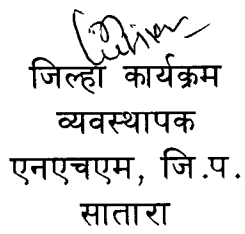 जिल्हा कार्यक्रम
व्यवस्थापक
एनएचएम, जि.प.
सातारा